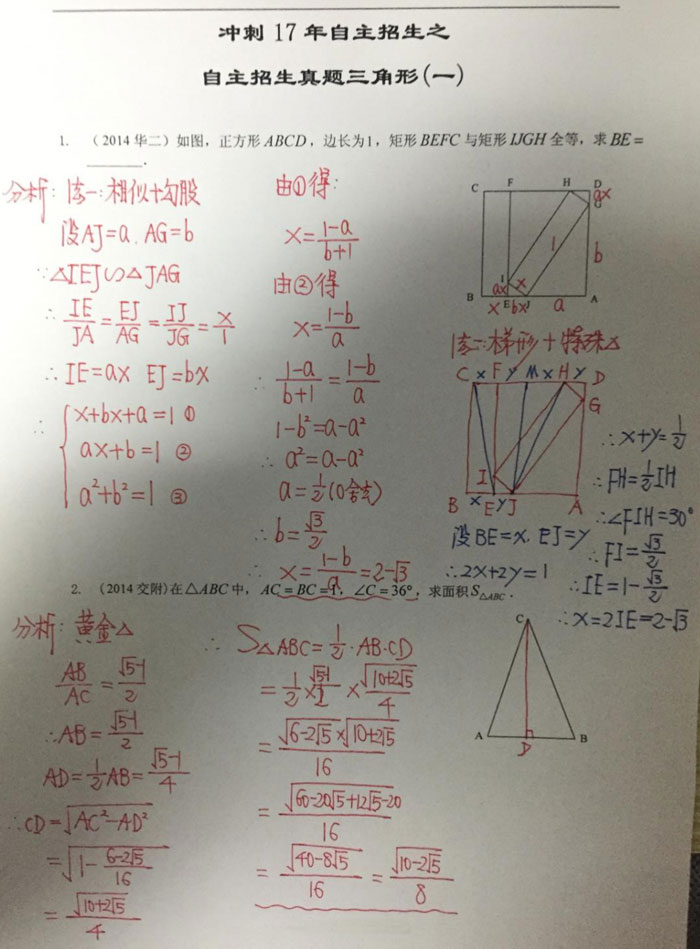 冲刺 17 年自主招生之
自主招生真题三角形(一)
1. (2014华二)如图,正方形 ABCD,边长为1,矩形 BEFC 与矩形 IJGH 全等,求 BE =
________.
分析:法一:相似+勾股
设AJ=a, AG=b
∵△IEJ∽△JAG
∴ IE/JA = EJ/AG = IJ/JG = x/1
∴IE=ax EJ=bx
∴ { x+bx+a=1 ①
ax+b=1 ②
a²+b²=1 ③
由①得:
x=(1-a)/(b+1)
由②得
x=(1-b)/a
∴ (1-a)/(b+1) = (1-b)/a
1-b²=a-a²
∴ a²=a-a²
a=1/2(0舍去)
∴b=√3/2
∴ x=(1-b)/a=2-√3
C F H D
ax
G
1
b
I
x
ax
B E J A
x bx a
法二:梯形+特殊△
C x F y M x H y D
G
I
B x E y J A
设BE=x, EJ=y
∴2x+2y=1
∴x+y=1/2
∴FH=1/2IH
∴∠FIH=30°
∴FI=√3/2
∴IE=1-√3/2
∴x=2IE=2-√3
2. (2014 交附)在△ABC 中, AC = BC =1, ∠C = 36°, 求面积S△ABC.
分析:黄金△
AB/AC = (√5-1)/2
∴AB=(√5-1)/2
AD=1/2AB=(√5-1)/4
∴CD=√(AC²-AD²)
=√(1-(6-2√5)/16)
=√(10+2√5)/4
∴ S△ABC=1/2·AB·CD
=1/2×(√5-1)/2×√(10+2√5)/4
=√(6-2√5)×√(10+2√5)/16
=√(60-20√5+12√5-20)/16
=√(40-8√5)/16=√(10-2√5)/8
C
A D B